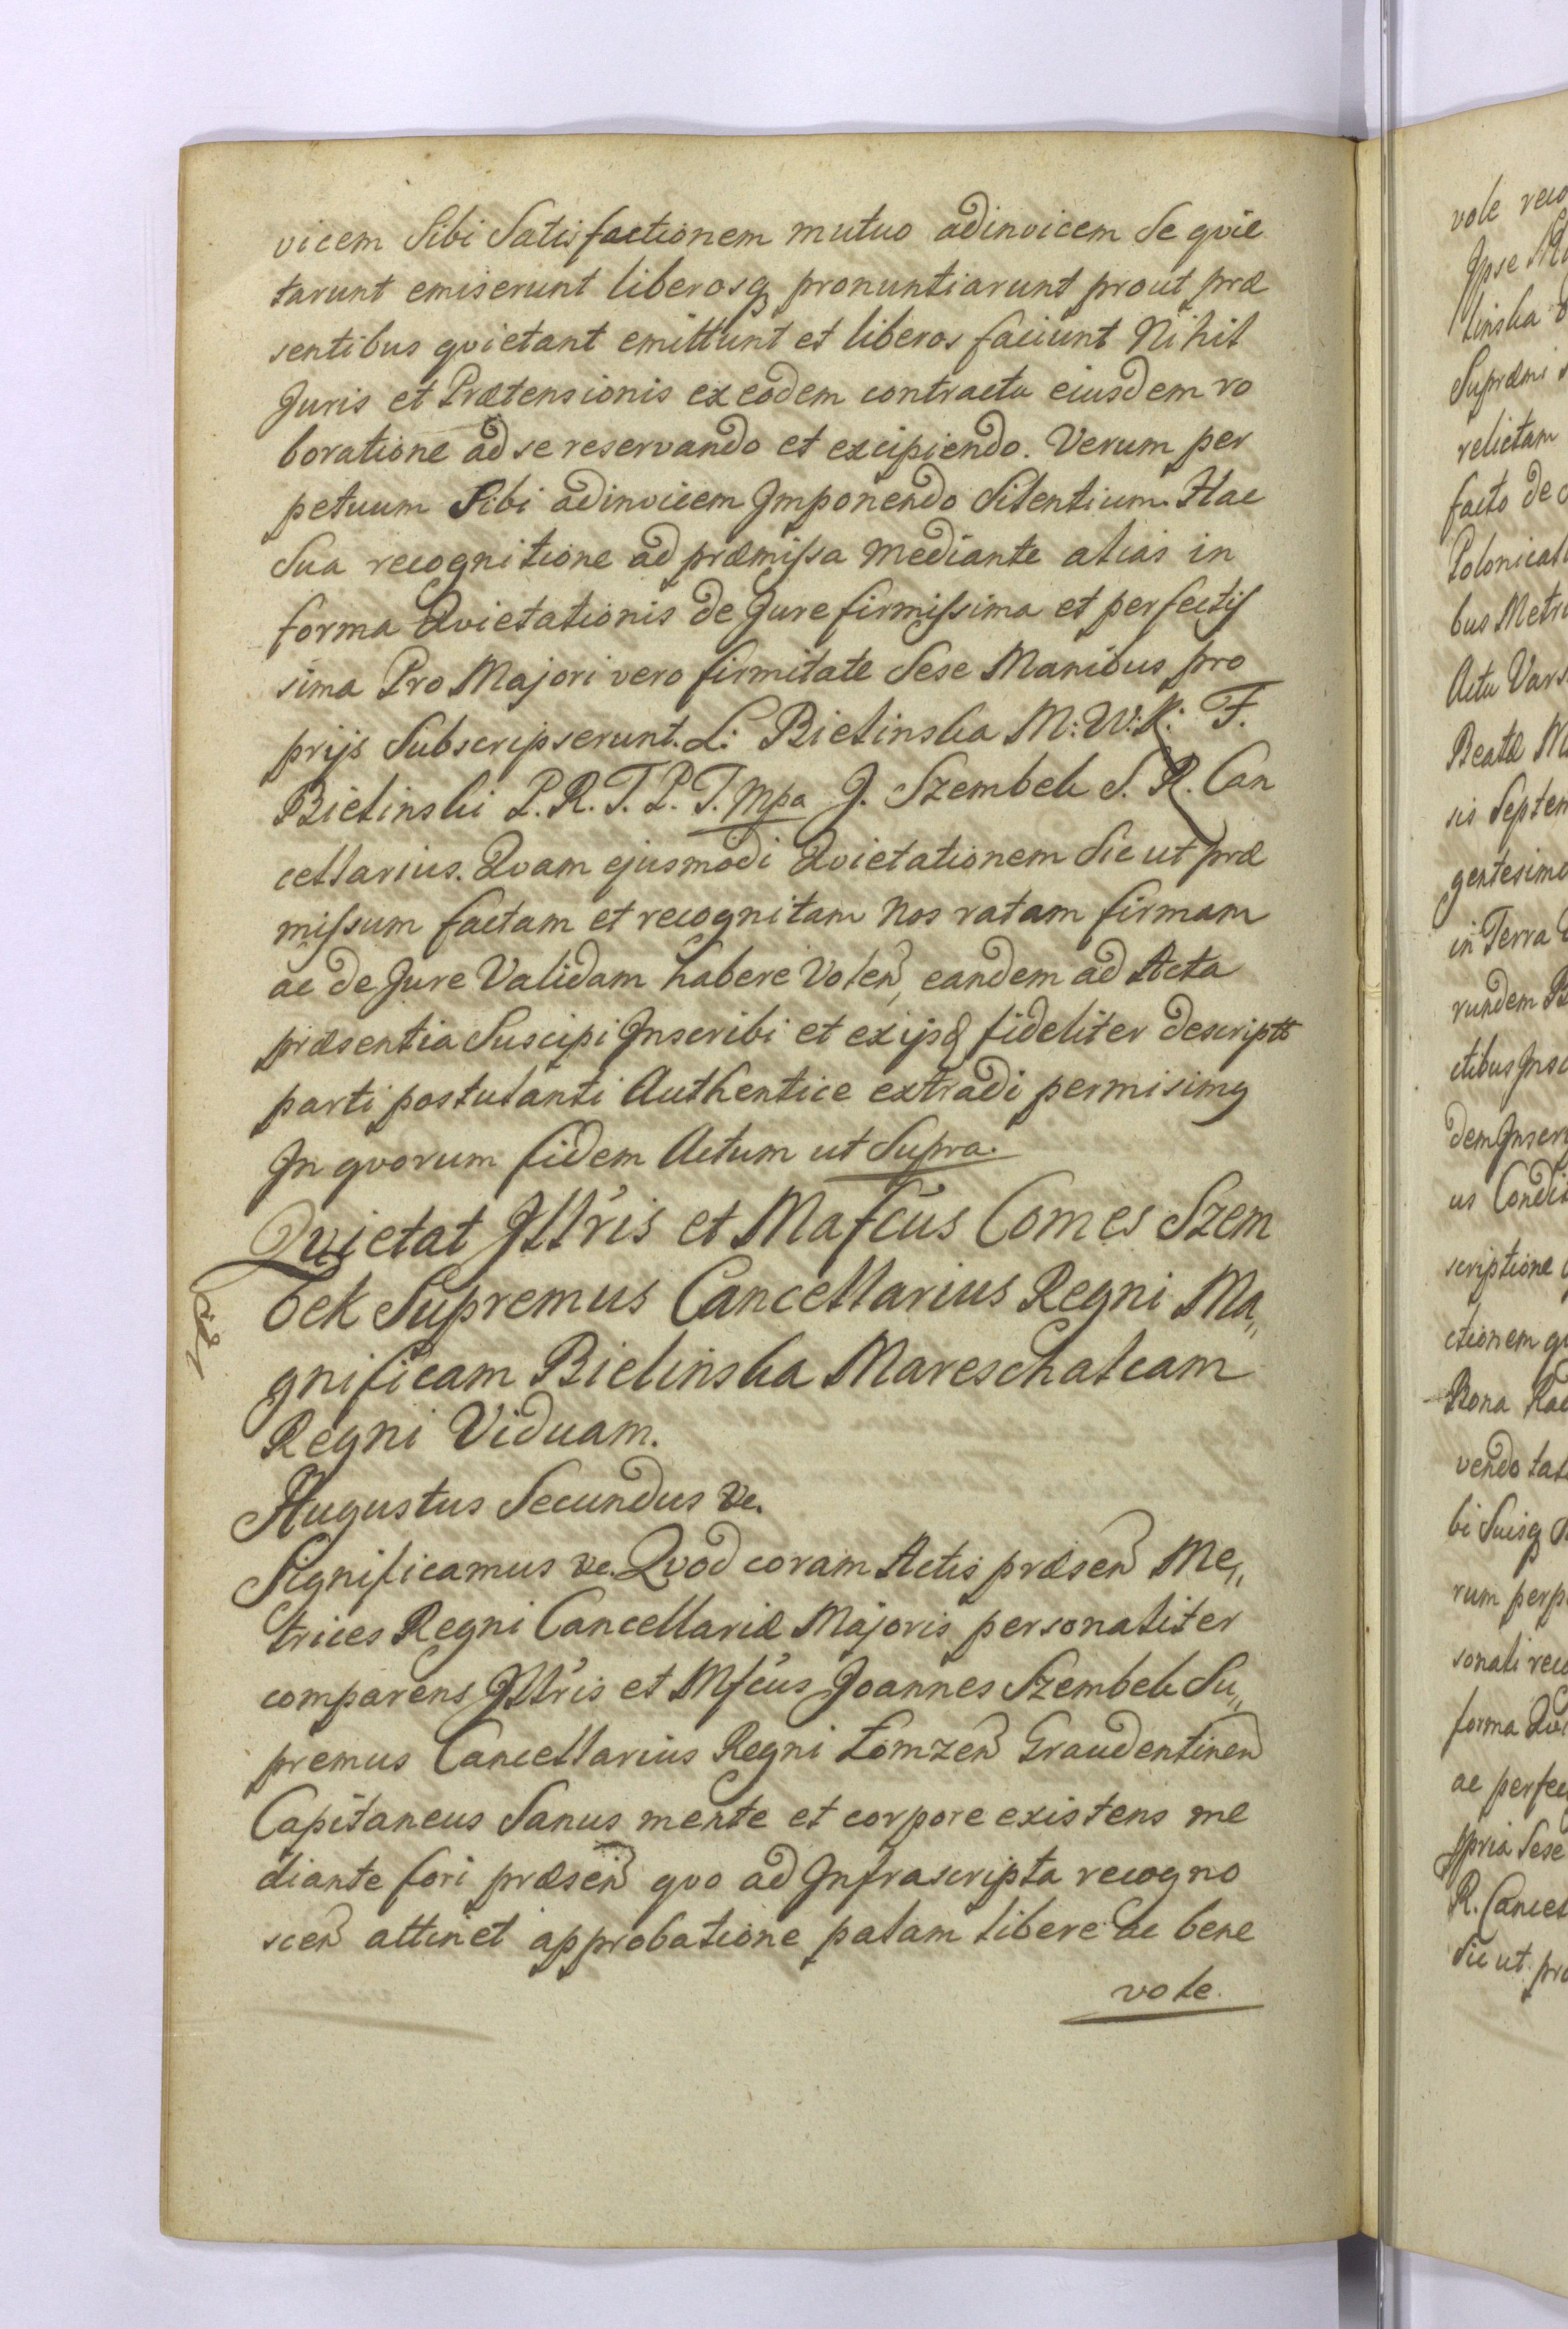 vicem Sibi Satisfactionem mutuo adinvicem Se qvie
tarunt emiserunt liberosq pronuntiarunt prout præ
sentibus qvietant emittunt et liberos faciunt Nihil
Juris et Prætensionis ex eodem contractu eiusdem ro
boratione ad se reservando et excipiendo. Verum per
petuum Sibi adinvicem Imponendo Silentium. Hac
Sua recognitione ad præmissa mediante alias in
forma Qvietationis de Jure firmissima et perfectis
sima Pro Majori vero firmitate Sese Manibus pro
prijs Subscripserunt. L: Bielinska M: W: K: F.
Bielinski P. R. T. P. T. Mpa J. Szembek S. R. Can
cellarius. Qvam ejusmodi Qvietationem Sic ut præ
missum factam et recognitam Nos ratam firmam
ac de Jure Validam habere Volen, eandem ad Acta
præsentia Suscipi Inscribi et ex ijsd fideliter descriptt
parti postulanti Authentice extradi permisimg
In qvorum fidem Actum ut Supra.
Qvietat Jllris et Mafcus Comes Szem
bek Supremus Cancellarius Regni Ma„
gnificam Bielinska Mareschalcam
Regni Viduam.
Augustus Secundus &c.
Significamus &c. Qvod coram Actis præsen Me„
trices Regni Cancellariæ Majoris personaliter
comparens Jllris et Mfcus Joannes Szembek Su„
premus Cancellarius Regni Łomzen Graudentinen
Capitaneus Sanus mente et corpore existens me
diante fori præsen qvo ad Infrascripta recogno
scen attinet approbatione palam libere ac bene
vole.
vole reco
Ipse
linska
Supræmi
relictam
facto de
Polonical
bus Metri
Actu Vars
Beatæ M
sis Septem
gentesimo
in Terra
rundem
ctibus Insc
dem Inser
us Condit
scriptione
ctionem qv
Bona Rad
vendo tal
bi Suisq
rum perp
sonali reco
forma Qvi
ac perfec
ppria Sese
R. Cancel
Sic ut præ